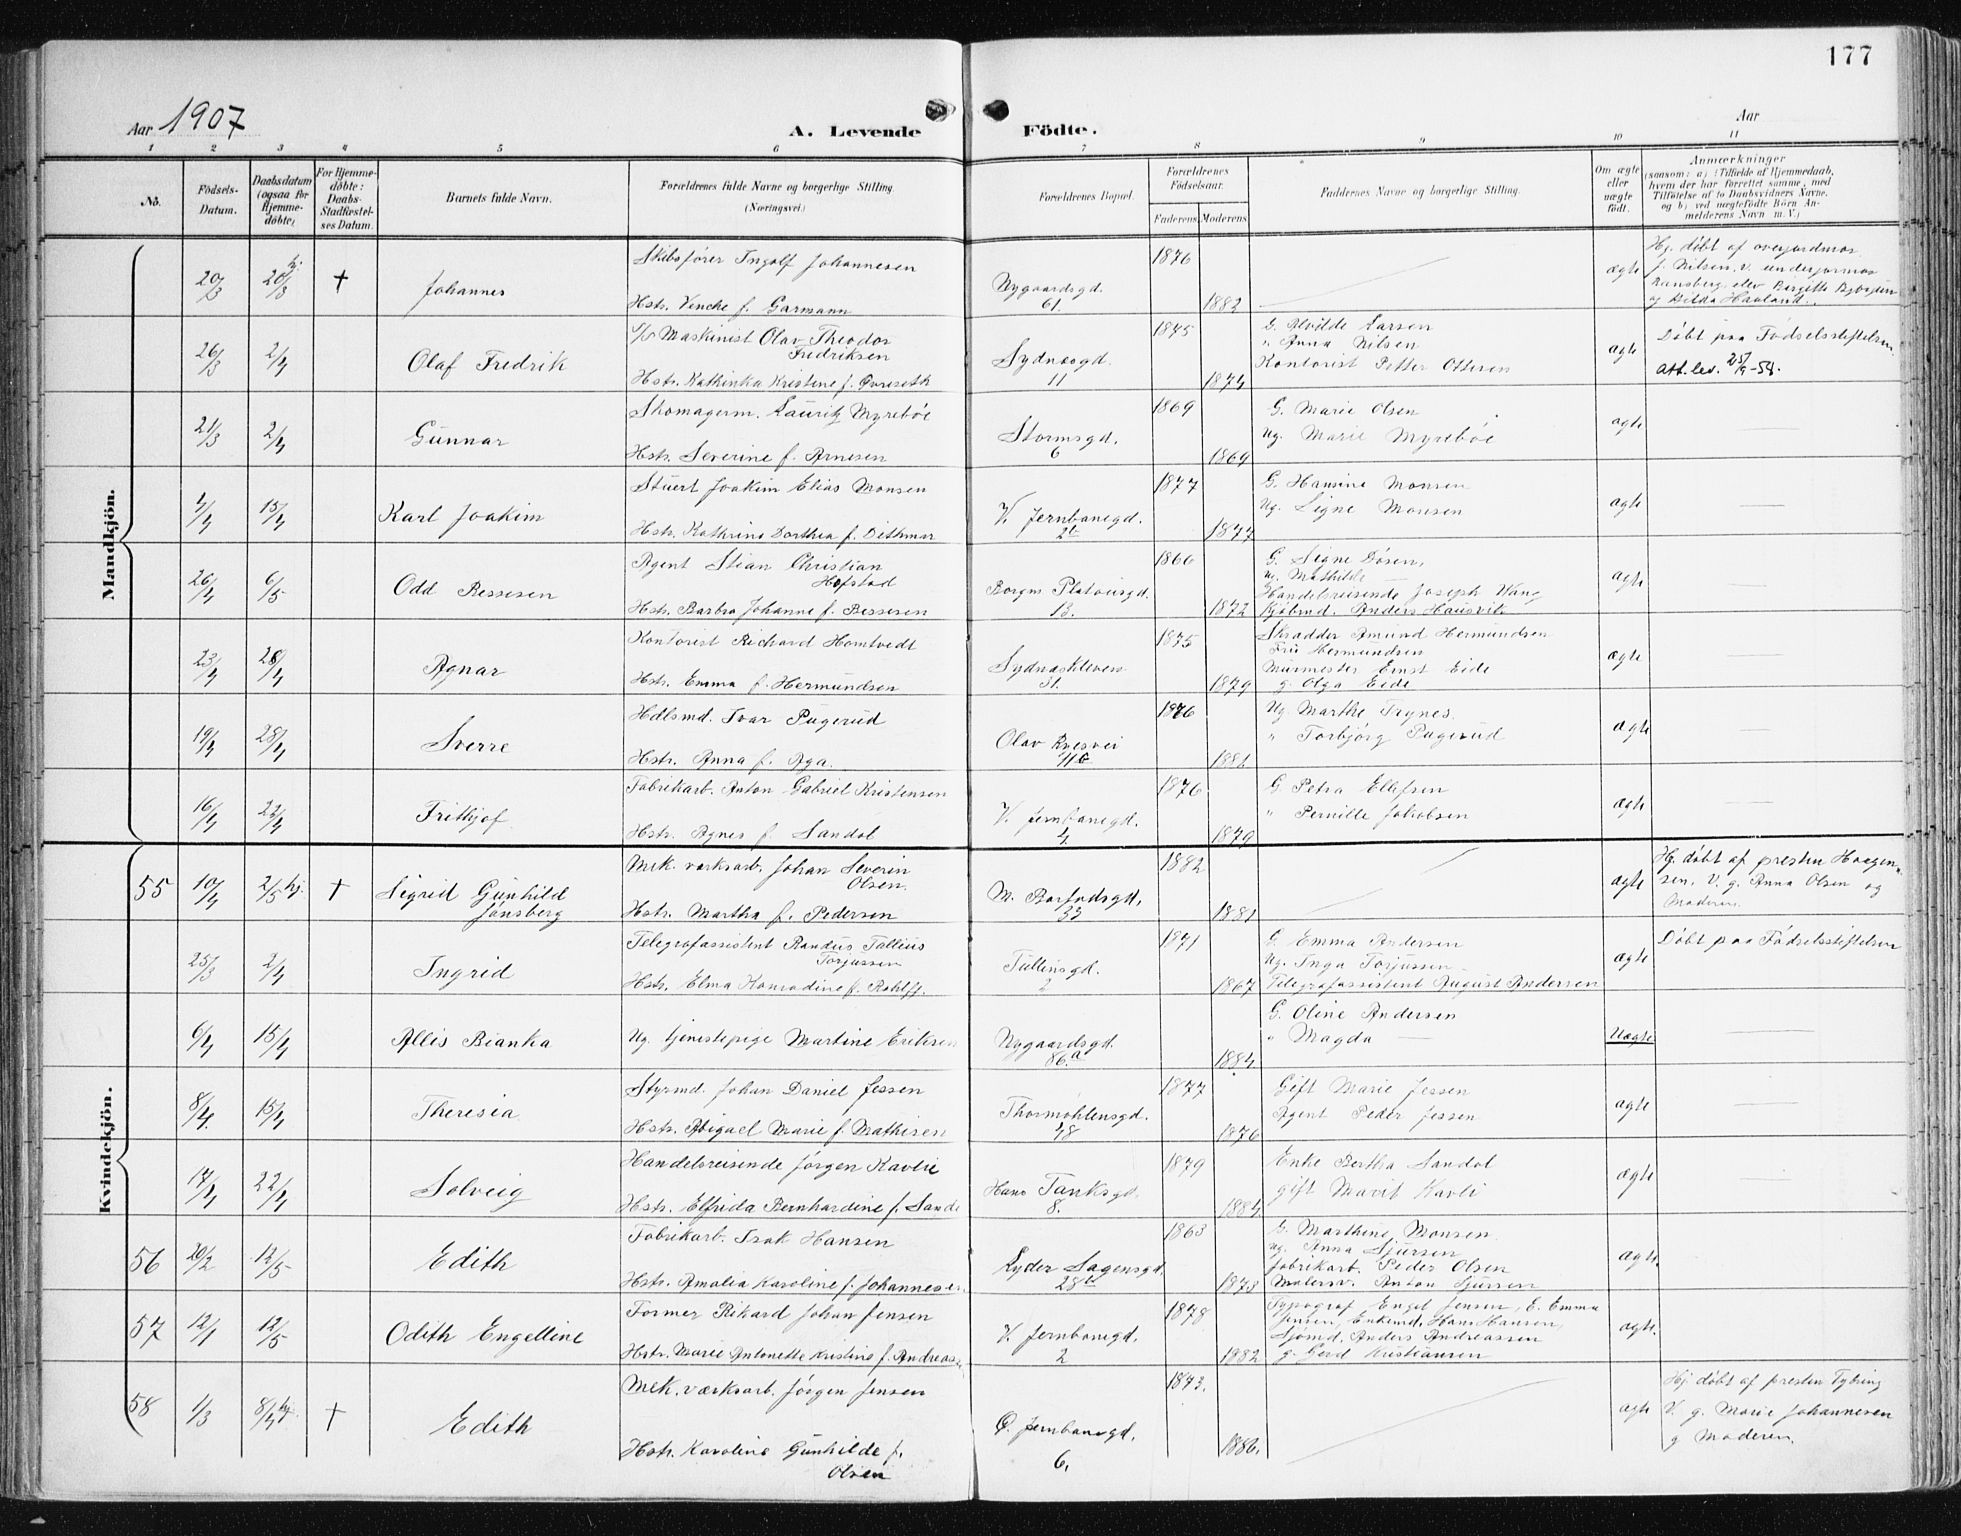 177
Aar 1907
A. Levende Födte.
Aar
1 2 3 4 5 6 7 8 9 10 11
No.
Födsels-Datum.
Daabsdatum (ogsaa for Hjemme-döbte)
For Hjemme-döbte: Daabs-Stadfæstel-ses Datum.
Barnets fulde Navn.
Forældrenes fulde Navne og borgerlige Stilling. (Næringsvei.)
Forældrenes Bopæl.
Forældrenes Födselsaar.
Faderens Moderens
Faddernes Navne og borgerlige Stilling.
Om ægte eller uægte födt.
Anmærkninger
(saasom: a) i Tilfælde af Hjemmedaab,
hvem der har forrettet samme, med
Tilföielse af to Daabsvidners Navne.
og b) ved uægtefödte Börn An-
melderens Navn m. V.)
Mandkjön.
20/3 20/3 hj. † Johannes
Skibsfører Ingolf Johannesen
Hstr. Vencke f. Garmann
Nygaardsgd. 61.
1876 1882
ægte
Hj. døbt af overjordmor
J. Nilsen, v. underjormor
elev Birgitte
og Hilda Hauland.
26/3 2/4 Olaf Fredrik
Maskinist Olav Theodor
Fredriksen
Hstr. Kathinka Kristine f.
Sydnesgd. 11
1875 1874
G. Alvilde Larsen
" Anna Nilsen
Kontorist Petter Ottesen
ægte
Døbt paa Fødselsstiftelsen
Att. lev. 25/9-54.
21/3 2/4 Gunnar
Skomagerm. Lauritz Myrebøe
Hstr. Severine f. Arnesen
Stormsgd. 6
1869 1869
G. Marie Olsen
Ug. Marie Myrebøe
ægte
1/4 15/4 Karl Joakim
Stuert Joakim Elias Monsen
Hstr. Kathrine Dorthea f. Dithmar
V. Jernbanegd. 26
1877 1877
G. Hansine Monsen
Ug. Signe Monsen
ægte
26/4 6/5 Odd Bessesen
Agent Stian Christian
Hofstad
Hstr. Barbra Johanne f. Bessesen
Borgm Platousgd. 13.
1866 1872
G. Signe Døsen,
ug. Mathilde —
Handelsreisende Joseph Wang
Kjøbmd. Anders Hausvik
ægte
23/4 28/4 Agnar
Kontorist Richard Homtvedt
Hstr. Emma f. Hermundsen
Sydneskleven 31.
1875 1879
Skrædder Amund Hermundsen
Fru Hermundsen
Murmester Ernst Eide
g. Olga Eide
ægte
19/4 28/4 Sverre
Hdlsmd. Ivar Pugerud
Hstr. Anna f. Aga.
Olav Kyresvei
1876 1881
Ug. Marthe Frynes.
" Torbjörg Pugerud
ægte
16/4 22/4 Frithjof
Fabrikarb. Anton Gabriel Kristensen
Hstr. Agnes f. Sandal
V. Jernbanegd. 4.
1876 1879
G. Petra Ellefsen
" Pernille Jakobsen
ægte
Kvindekjön.
55 10/4 2/5 hj. † Sigrid Gunhild
Jansberg
Mek. værksarb. Johan Severin
Olsen.
Hstr. Martha f. Pedersen
M. Barfodsgd. 33
1882 1881
ægte
Hj. døbt af presten Haagen-
sen, V. g. Anna Olsen og
Moderen.
25/3 2/4 Ingrid
Telegrafassistent Randus Tallius
Torjussen
Hstr. Elma Konradine f. Rohlff.
Tullinsgd. 2
1871 1867
G. Emma Andersen
Ug. Inga Torjussen
Telegrafassistent August Andersen
ægte
Døbt paa Fødselsstiftelsen
6/4 15/4 Allis Bianka
Ug. tjenestepige Martine Eriksen
Nygaardsgd. 86a
1884
G. Oline Andersen
" Magda —
Uægte
8/4 15/4 Theresia
Styrmd. Johan Daniel Jessen
Hstr. Abigael Marie f. Mathisen
Thormøhlensgd. 48
1877 1876
Gift Marie Jessen
Agent Peder Jessen
ægte
17/4 22/4 Solveig
Handelsreisende Jørgen Kavlie
Hstr. Elfrida Bernhardine f. Sand
Hans Tanksgd. 8.
1879 1884
Enke Bertha Sandal
gift Marit Kavli
ægte
56 20/2 12/5 Edith
Fabrikarb. Isak Hansen
Hstr. Amalia Karoline f. Johannesen
Lyder Sagensgd. 28b
1863 1873
G. Marthine Monsen
ug. Anna Sjursen
Fabrikarb. Peder Olsen
Malersv. Anton Sjursen
ægte.
57 12/1 12/5 Odith Engeline
Former Rikard Johan Jensen
Hstr. Marie Antonette Kristine f. Andreas
V. Jernbanegd. 2
1878 1882
Typograf Engel Jensen, E. Emma
Jensen, Enkemd. Hans Hansen,
Sjømd. Anders Andreassen
g. Gerd Kristiansen
ægte.
58 1/3 8/4 hj † Edith
Mek. værksarb. Jørgen Jensen
Hstr. Karoline Gunhilde f.
Olsen
Ø. Jernbanegd. 6.
1873. 1886.
ægte
Hj. døbt af presten Tybring
V. g. Marie Johannesen
g Moderen.